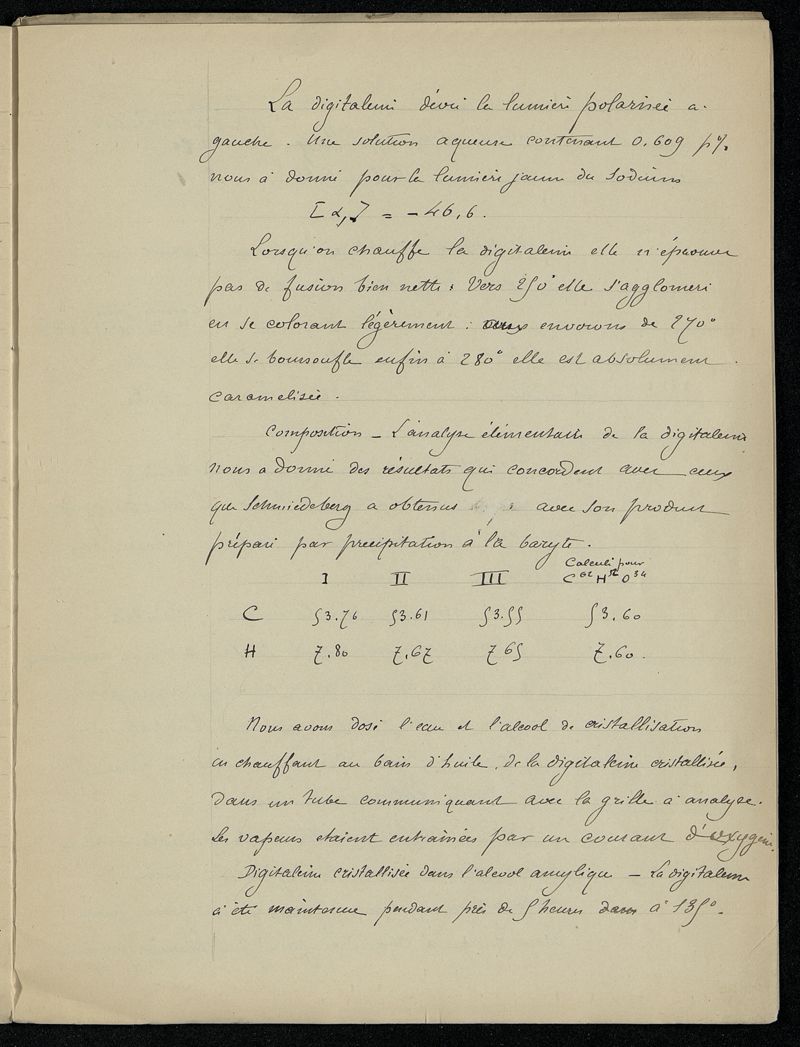 La digitaleine dévie la lumière polarisée a
gauche. Une solution aqueuse contenant 0.609 p%
nous a donné pour la lumière jaune du Sodium
[α] = -46,6.
Lorsqu'on chauffe la digitaleine elle n'éprouve
pas de fusion bien nette : Vers 250° elle s'agglomère
en se colorant légèrement : aux environs de 270°
elle se boursoufle enfin à 280° elle est absolument
caramelisée.
Composition – L'analyse élémentaire de la digitaleine
nous a donné des résultats qui concordent avec ceux
que Schmiedeberg a obtenus avec son produit
préparé par precipitation à la baryte.
I II III Calculé pour
C62 H52 O34
C 53.76 53.61 53.55 53.60
H 7.80 7.67 7 65 7.60.
Nous avons dosé l'eau et l'alcool de cristallisation
en chauffant au bain d'huile, de la digitaleine cristallisée,
dans un tube communiquant avec la grille à analyse.
Les vapeurs etaient entrainées par un courant d'oxygène.
Digitaleine cristallisée dans l'alcool amylique – La digitaleine
a été maintenue pendant près de 5 heures dans à 135°.